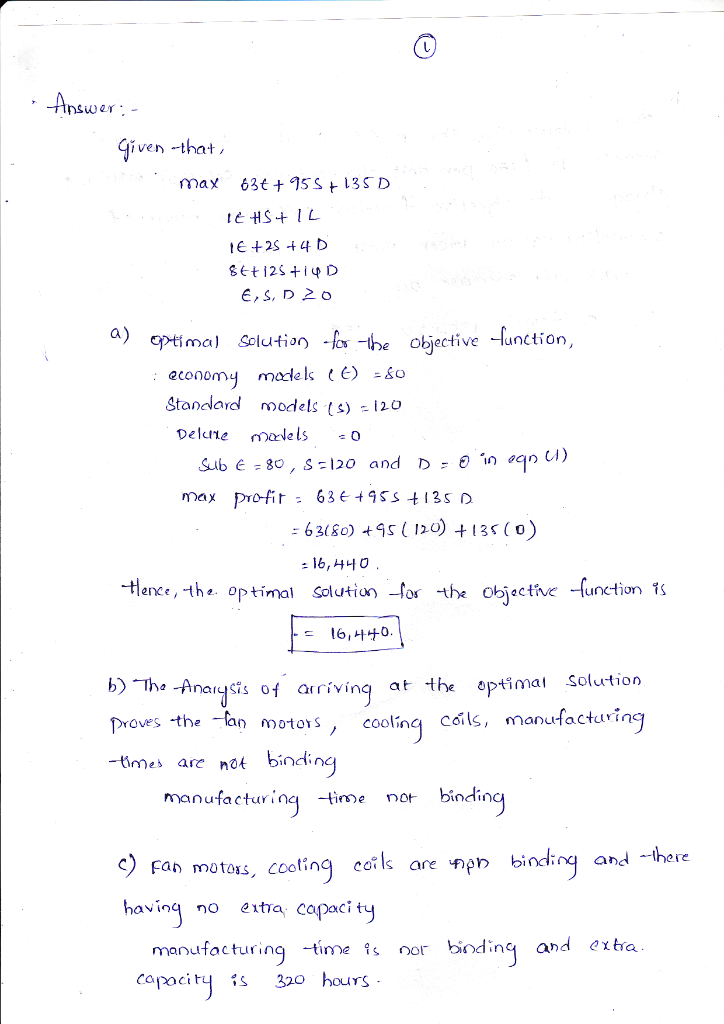 1
Answer:-
Given that,
max 63E + 95S + 135D
1E + 1S + 1L
1E + 2S + 4D
8E + 12S + 14D
E, S, D ≥ 0
a) optimal solution for the objective function,
: economy models (E) = 80
Standard models (s) = 120
Deluxe models = 0
Sub E = 80, S = 120 and D = 0 in eqn (1)
max profit = 63E + 95S + 135D
= 63(80) + 95(120) + 135(0)
= 16,440.
Hence, the optimal solution for the objective function is
= 16,440.
b) The Anarysis of arriving at the optimal solution
proves the fan motors, cooling coils, manufacturing
times are not binding
manufacturing time not binding
c) Fan motors, cooling coils are binding and there
having no extra capacity
manufacturing time is not binding and extra
capacity is 320 hours.